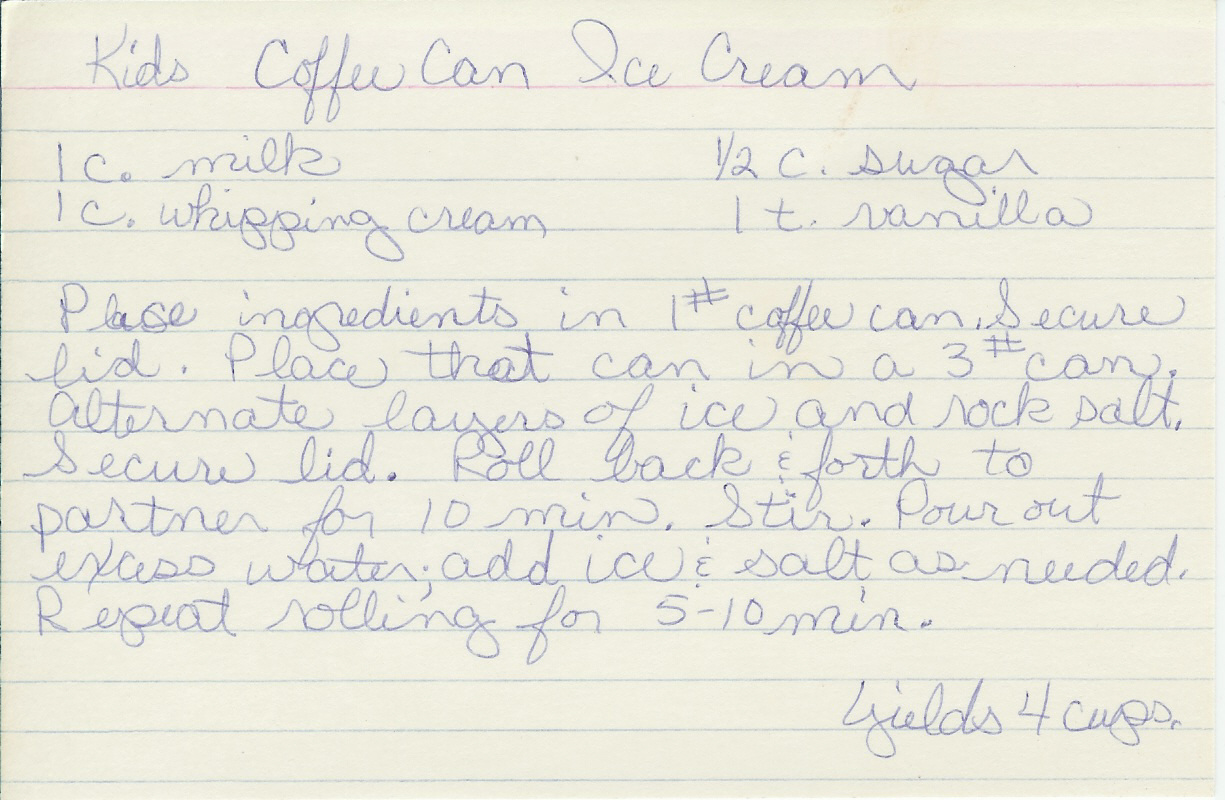 Kids Coffee Can Ice Cream
1 c. milk 1/2 c. sugar
1 c. whipping cream 1 t. vanilla
Place ingredients in 1# coffee can. Secure
lid. Place that can in a 3# can.
Alternate layers of ice and rock salt.
Secure lid. Roll back & forth to
partner for 10 min. Stir. Pour out
excess water; add ice & salt as needed.
Repeat rolling for 5-10 min.
Yields 4 cups.